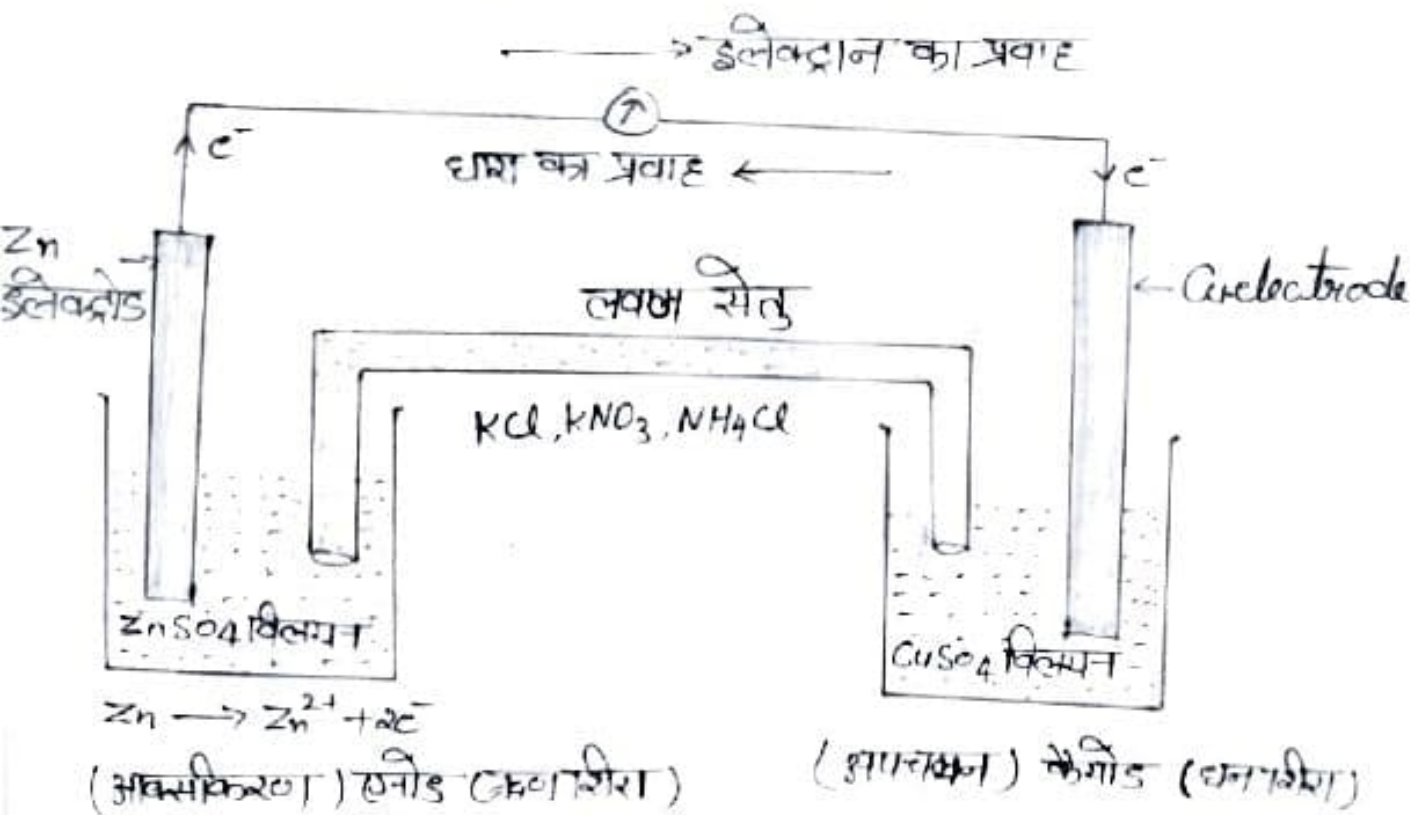 इलेक्ट्रान का प्रवाह
e⁻
धारा का प्रवाह
e⁻
Zn
इलेक्ट्रोड
Cu electrode
लवण सेतु
KCl, KNO₃, NH₄Cl
ZnSO₄ विलयन
CuSO₄ विलयन
Zn → Zn²⁺ + 2e⁻
(आक्सीकरण) एनोड (ऋण सिरा)
(अपचयन) कैथोड (धन सिरा)